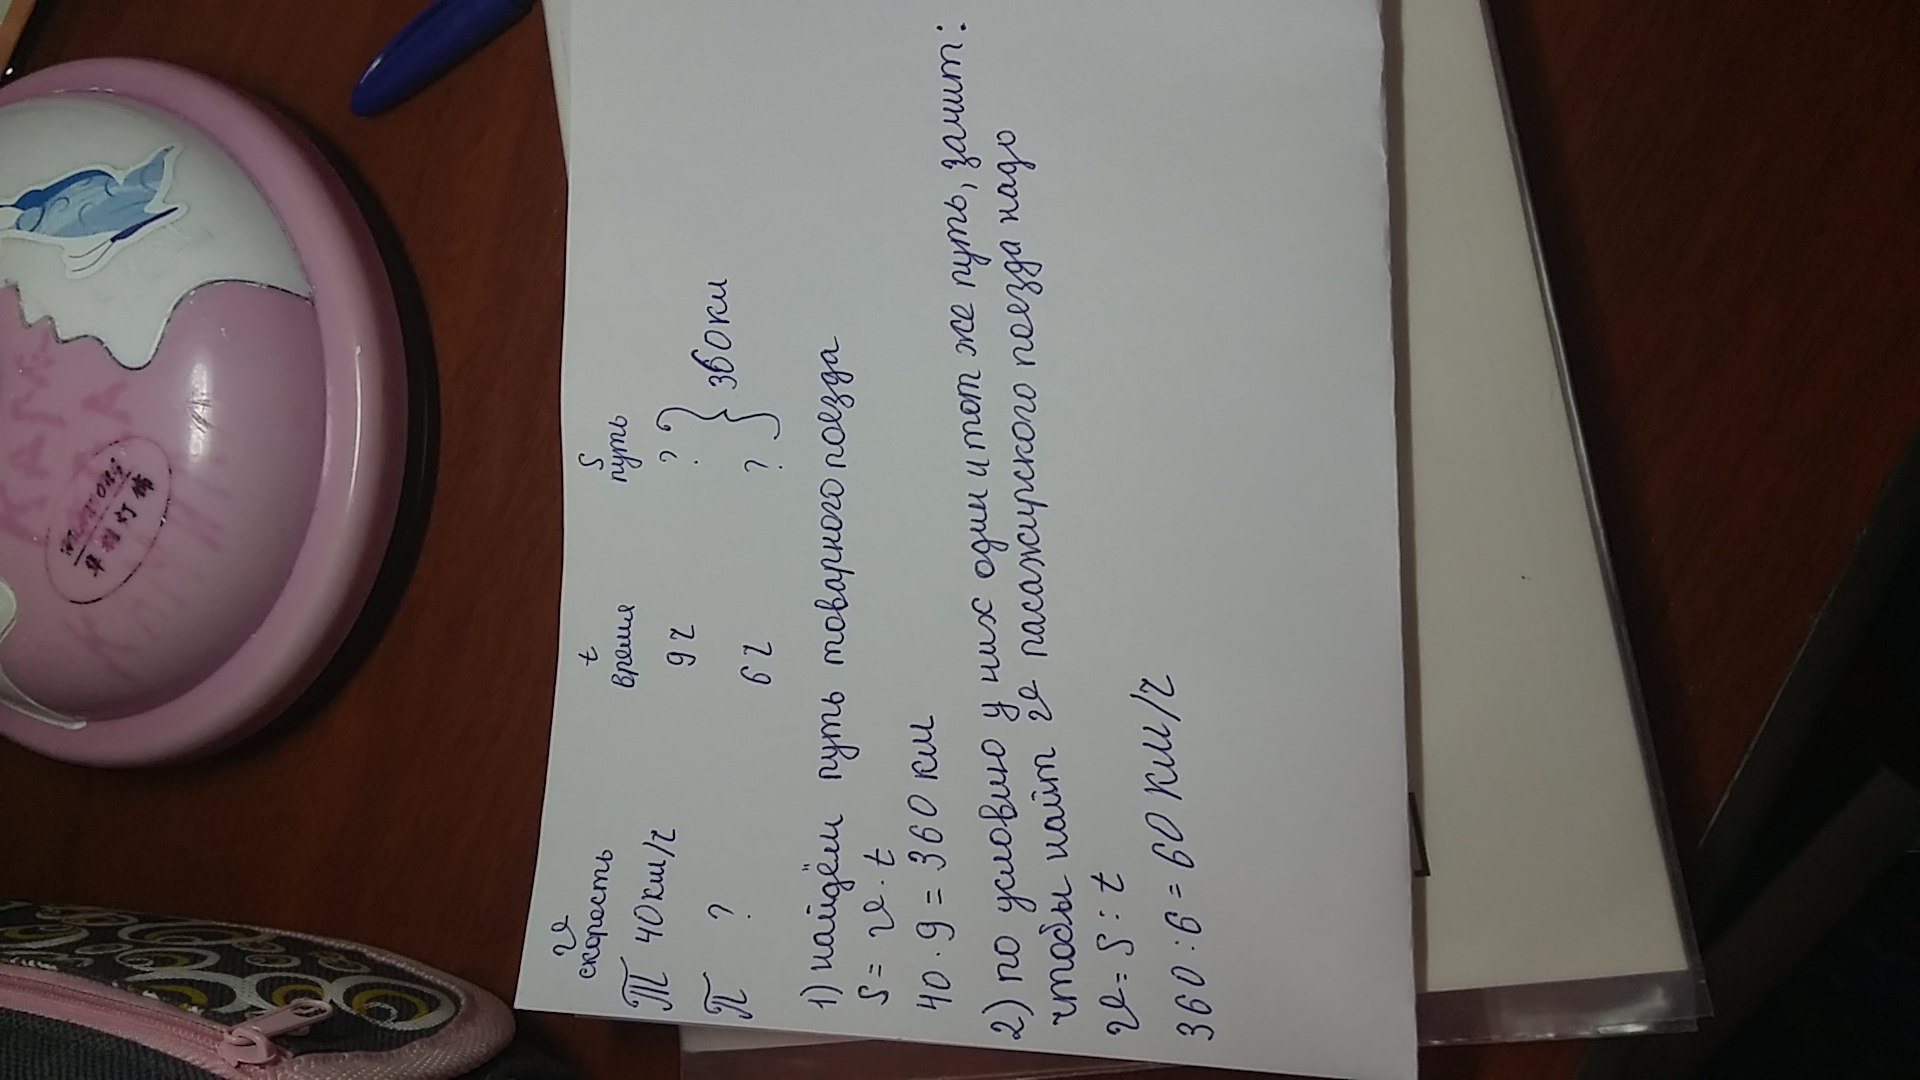 v t S
скорость время путь
Т 40км/ч 9ч ?
} 360км
П ? 6ч ?
1) найдём путь товарного поезда
S = v · t
40 · 9 = 360 км
2) по условию у них один и тот же путь, зачит:
чтобы найт v пасажирского поезда надо
v = S : t
360 : 6 = 60 км/ч